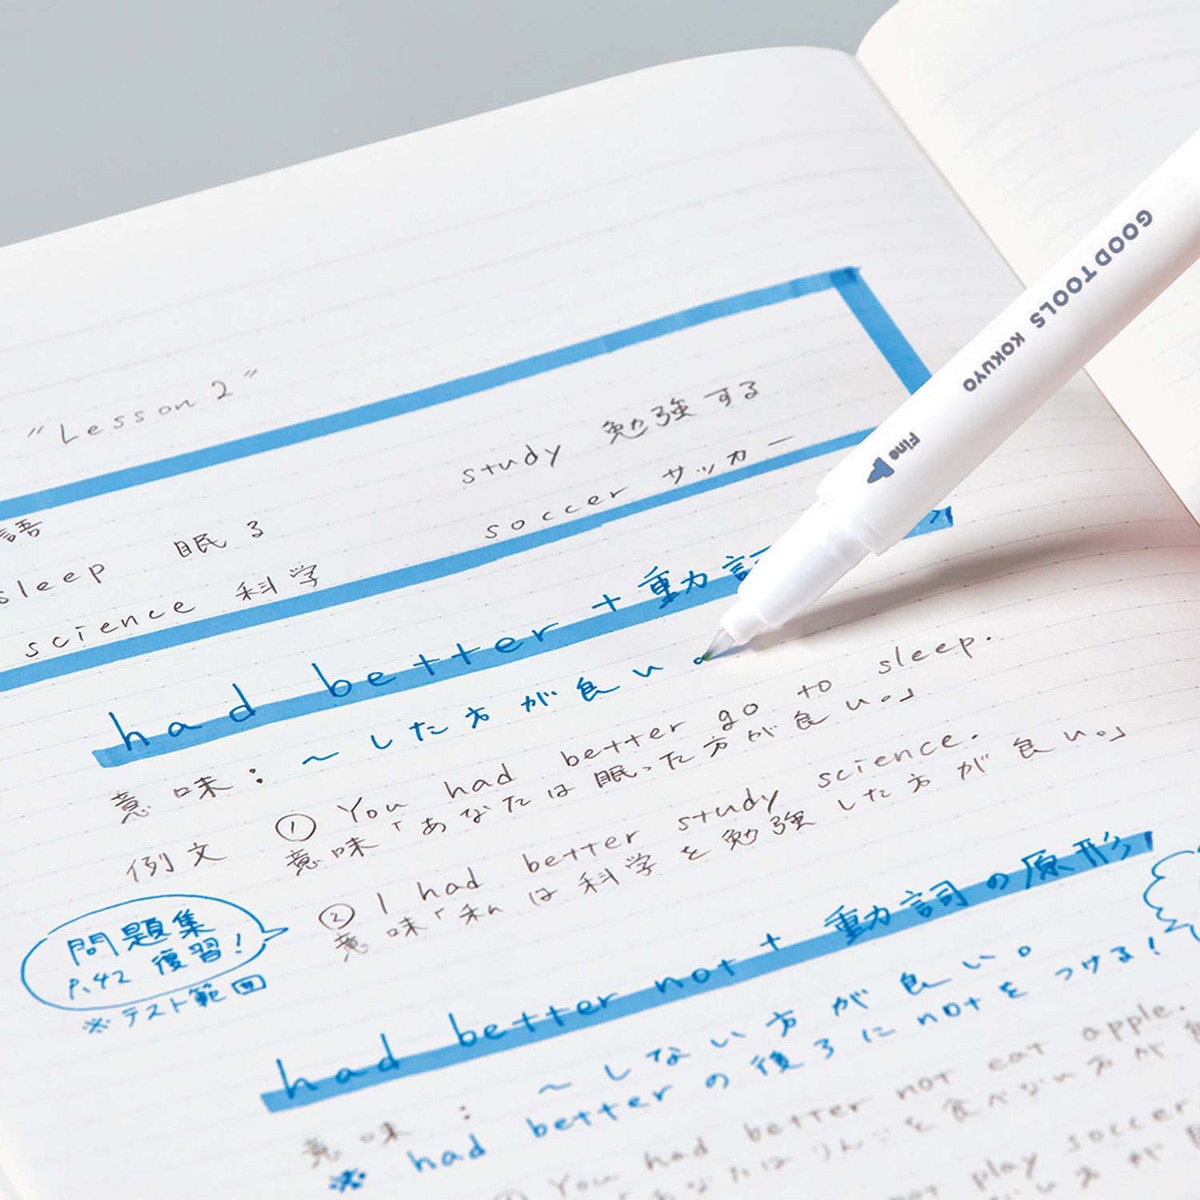 "Lesson 2"
語
sleep 眠る
study 勉強する
science 科学
soccer サッカー
had better + 動詞
意味: ～した方が良い。
例文 ① You had better go to sleep.
意味「あなたは眠った方が良い。」
② I had better study science.
意味「私は科学を勉強した方が良い。」
問題集
P.42 復習!
※テスト範囲
had better not + 動詞の原形
意味: ～しない方が良い。
※ had better の後ろに not をつける!
① You had better not eat apple.
あなたはりんごを食べない方が
not play soccer
GOOD TOOLS KOKUYO
Fine